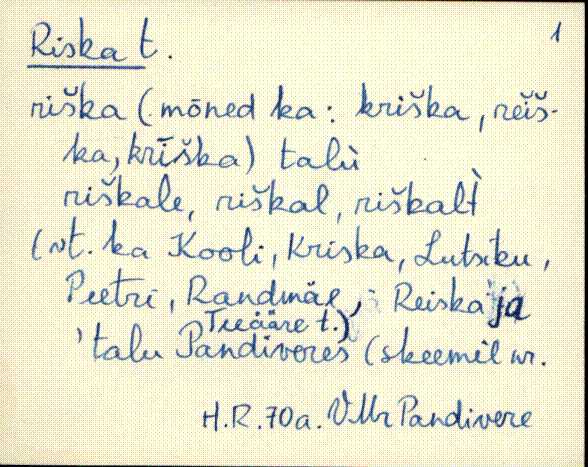 1
Riska t.
riška (mōned ka: kriška, reĭš-
ka, krīška) talù
riškale, riškal, riškalt̀
(vt. ka Kooli, Kriska, Lutsiku,
Peetri, Randmäe, Reiska ja
Teeääre t.)
talu Pandiveres (skeemil nr.
H.R. 70a. VMr Pandivere